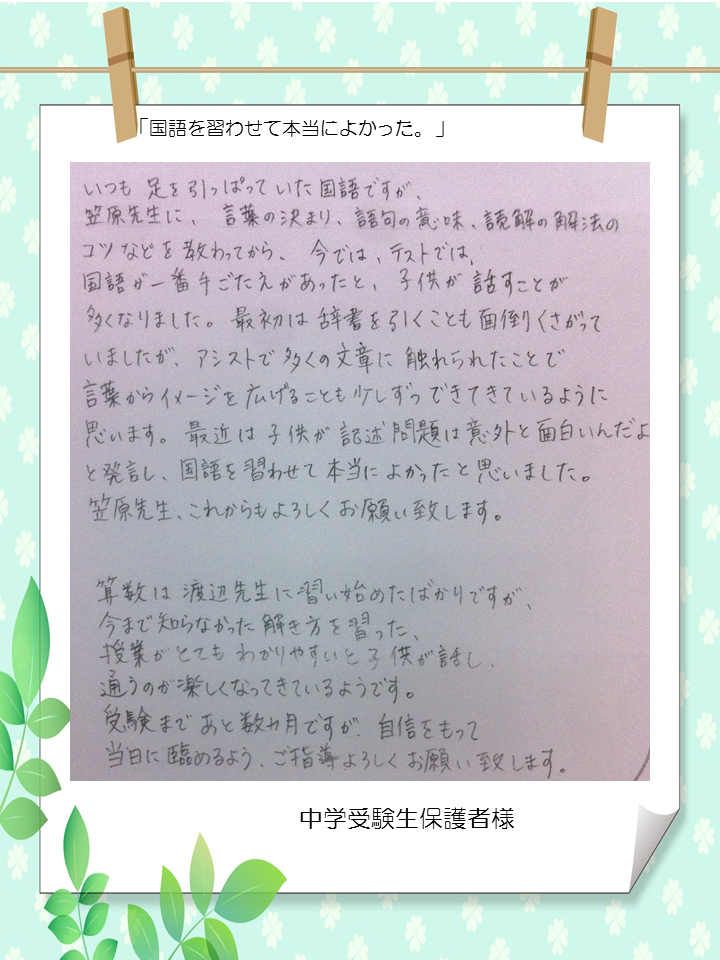 「国語を習わせて本当によかった。」
いつも 足を引っぱっていた国語ですが、
笠原先生に、言葉の決まり、語句の意味、読解の解法の
コツなどを教わってから、今では、テストでは、
国語が一番手ごたえがあったと、子供が話すことが
多くなりました。最初は辞書を引くことも面倒くさがって
いましたが、アシストで多くの文章に触れられたことで
言葉からイメージを広げることも少しずつできてきているように
思います。最近は子供が記述問題は意外と面白いんだよ
と発言し、国語を習わせて本当によかったと思いました。
笠原先生、これからもよろしくお願い致します。
算数は渡辺先生に習い始めたばかりですが、
今まで知らなかった解き方を習った、
授業がとてもわかりやすいと子供が話し、
通うのが楽しくなってきているようです。
受験まであと数カ月ですが、自信をもって
当日に臨めるよう、ご指導よろしくお願い致します。
中学受験生保護者様